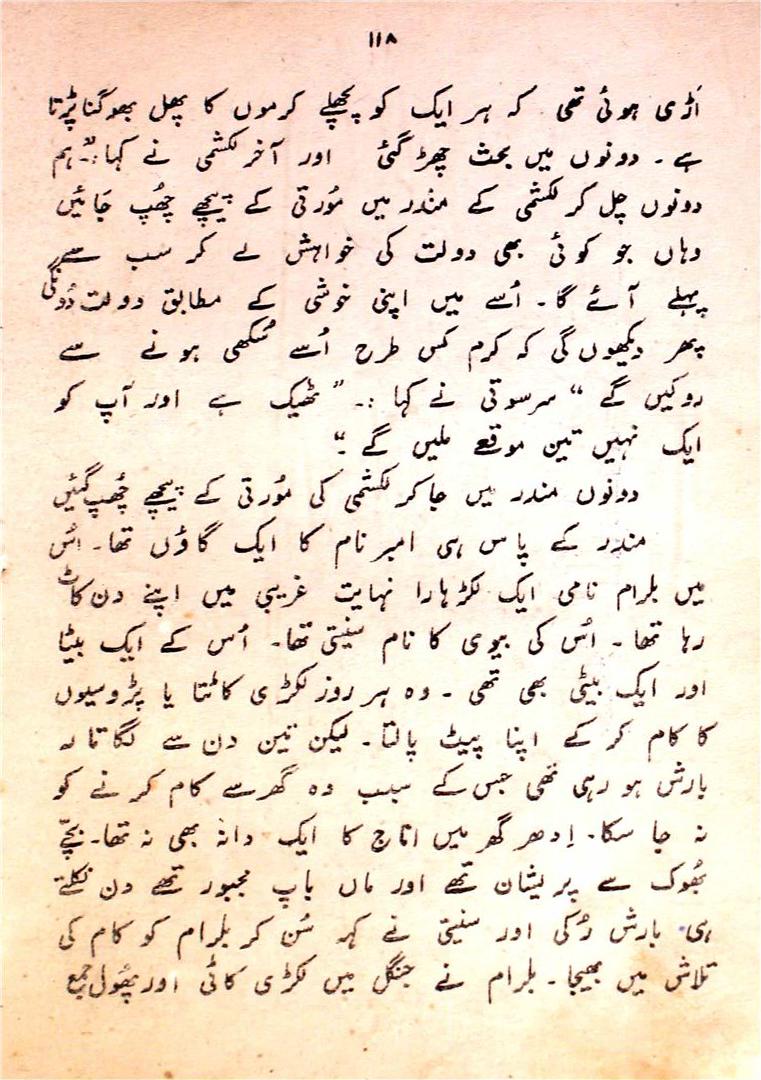 ۱۱۸
اَڑی ہوئی تھی کہ ہر ایک کو پچھلے کرموں کا پھل بھوگنا پڑتا
ہے ۔ دونوں میں بحث چھڑ گئی اور آخر لکشمی نے کہا:۔ "ہم
دونوں چل کر لکشمی کے مندر میں مُورتی کے پیچھے چھُپ جَائیں
وہاں جو کوئی بھی دولت کی خواہش لے کر سب سے
پہلے آئے گا ۔ اُسے میں اپنی خوشی کے مطابق دولت دُونگی
پھر دیکھوں گی کہ کرم کس طرح اُسے سُکھی ہونے سے
روکیں گے " سرسوتی نے کہا :۔ " ٹھیک ہے اور آپ کو
ایک نہیں تین موقعے ملیں گے ۔"
دونوں مندر میں جا کر لکشمی کی مُورتی کے پیچھے چھُپ گئیں
مندر کے پاس ہی امبر نام کا ایک گاؤں تھا ۔ اُس
میں بلرام نامی ایک لکڑہارا نہایت غریبی میں اپنے دن کاٹ
رہا تھا ۔ اُس کی بیوی کا نام سنیتی تھا ۔ اُس کے ایک بیٹا
اور ایک بیٹی بھی تھی ۔ وہ ہر روز لکڑی کاٹتا یا پڑوسیوں
کا کام کر کے اپنا پیٹ پالتا ۔ لیکن تین دن سے لگاتار
بارش ہو رہی تھی جس کے سبب وہ گھر سے کام کرنے کو
نہ جا سکا ۔ اِدھر گھر میں اناج کا ایک دانہ بھی نہ تھا ۔ بچّے
بھُوک سے پریشان تھے اور ماں باپ مجبور تھے دن نکلتے
ہی بارش رُکی اور سنیتی نے کہہ سُن کر بلرام کو کام کی
تلاش میں بھیجا ۔ بلرام نے جنگل میں لکڑی کاٹی اور پھُول جمع